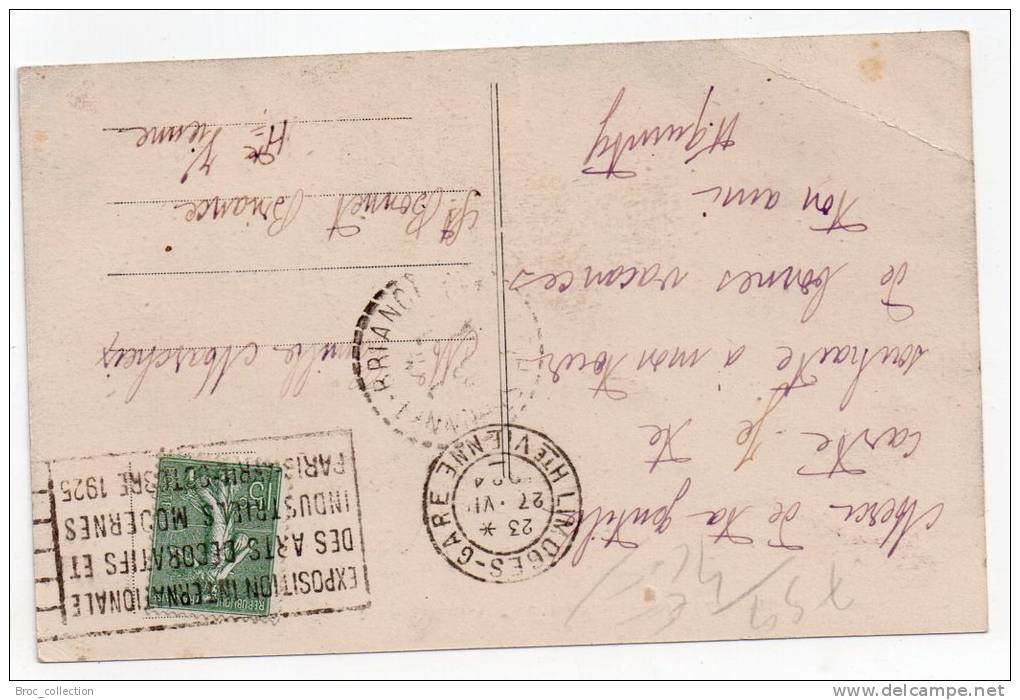 Merci de ta gentille
carte. Je te
souhaite a mon tour
de bonnes vacances
Ton ami
Mlle Marcheix
St Bonnet Briance
Hte Vienne
LIMOGES-GARE
HTE VIENNE
23 *
27 · VII
BRIANCE
EXPOSITION INTERNATIONALE
DES ARTS DECORATIFS ET
INDUSTRIELS MODERNES
PARIS AVRIL-OCTOBRE 1925
15
Broc_collection
www.delcampe.net